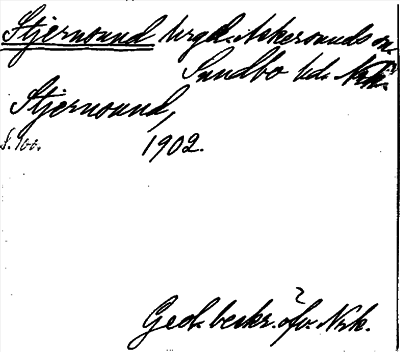 Stjernsund hrgd. Askersunds o.
Sundbo hd. Nrk.
Stjernsund,
s. 100. 1902.
Geol. beskr. öfv. Nrk.